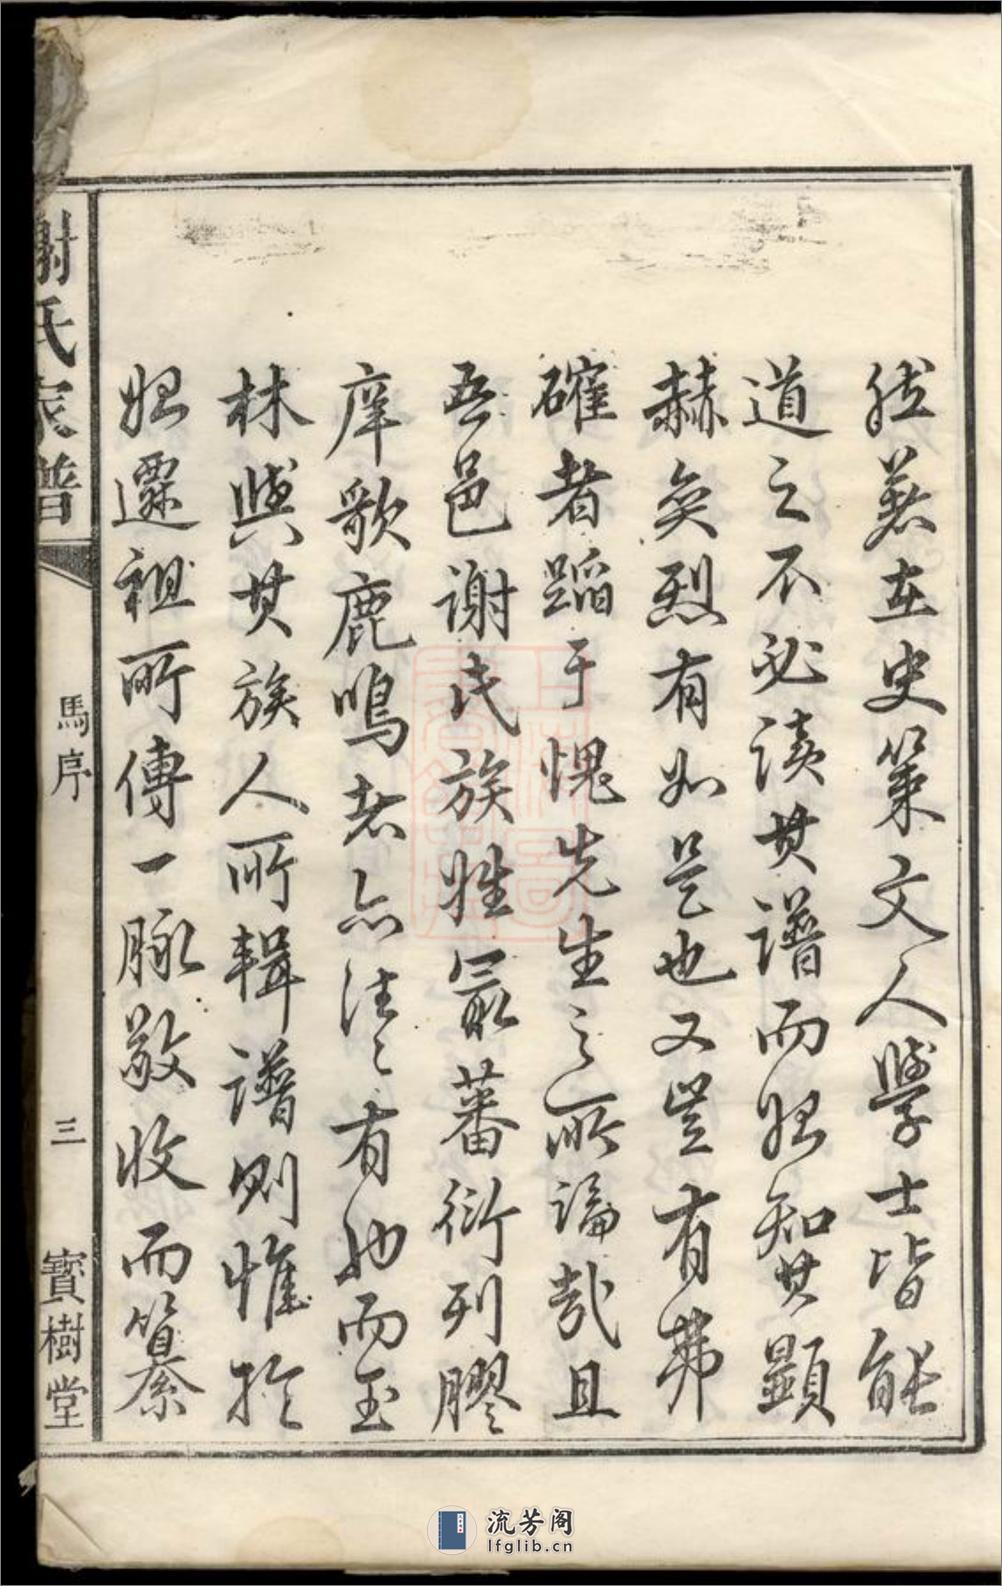 然著在史策文人學士皆能
道之不必讀其譜而始知其顯
赫奕烈有如是也又豈有弗
確者蹈于愧先生之所論哉且
吾邑謝氏族姓最蕃衍列膠
庠歌鹿鳴者亦往々有也而至
林與其族人所輯譜則惟於
始遷祖所傳一脈敬收而纂
謝氏家譜
馬序
三
寶樹堂
流芳阁
lfglib.cn